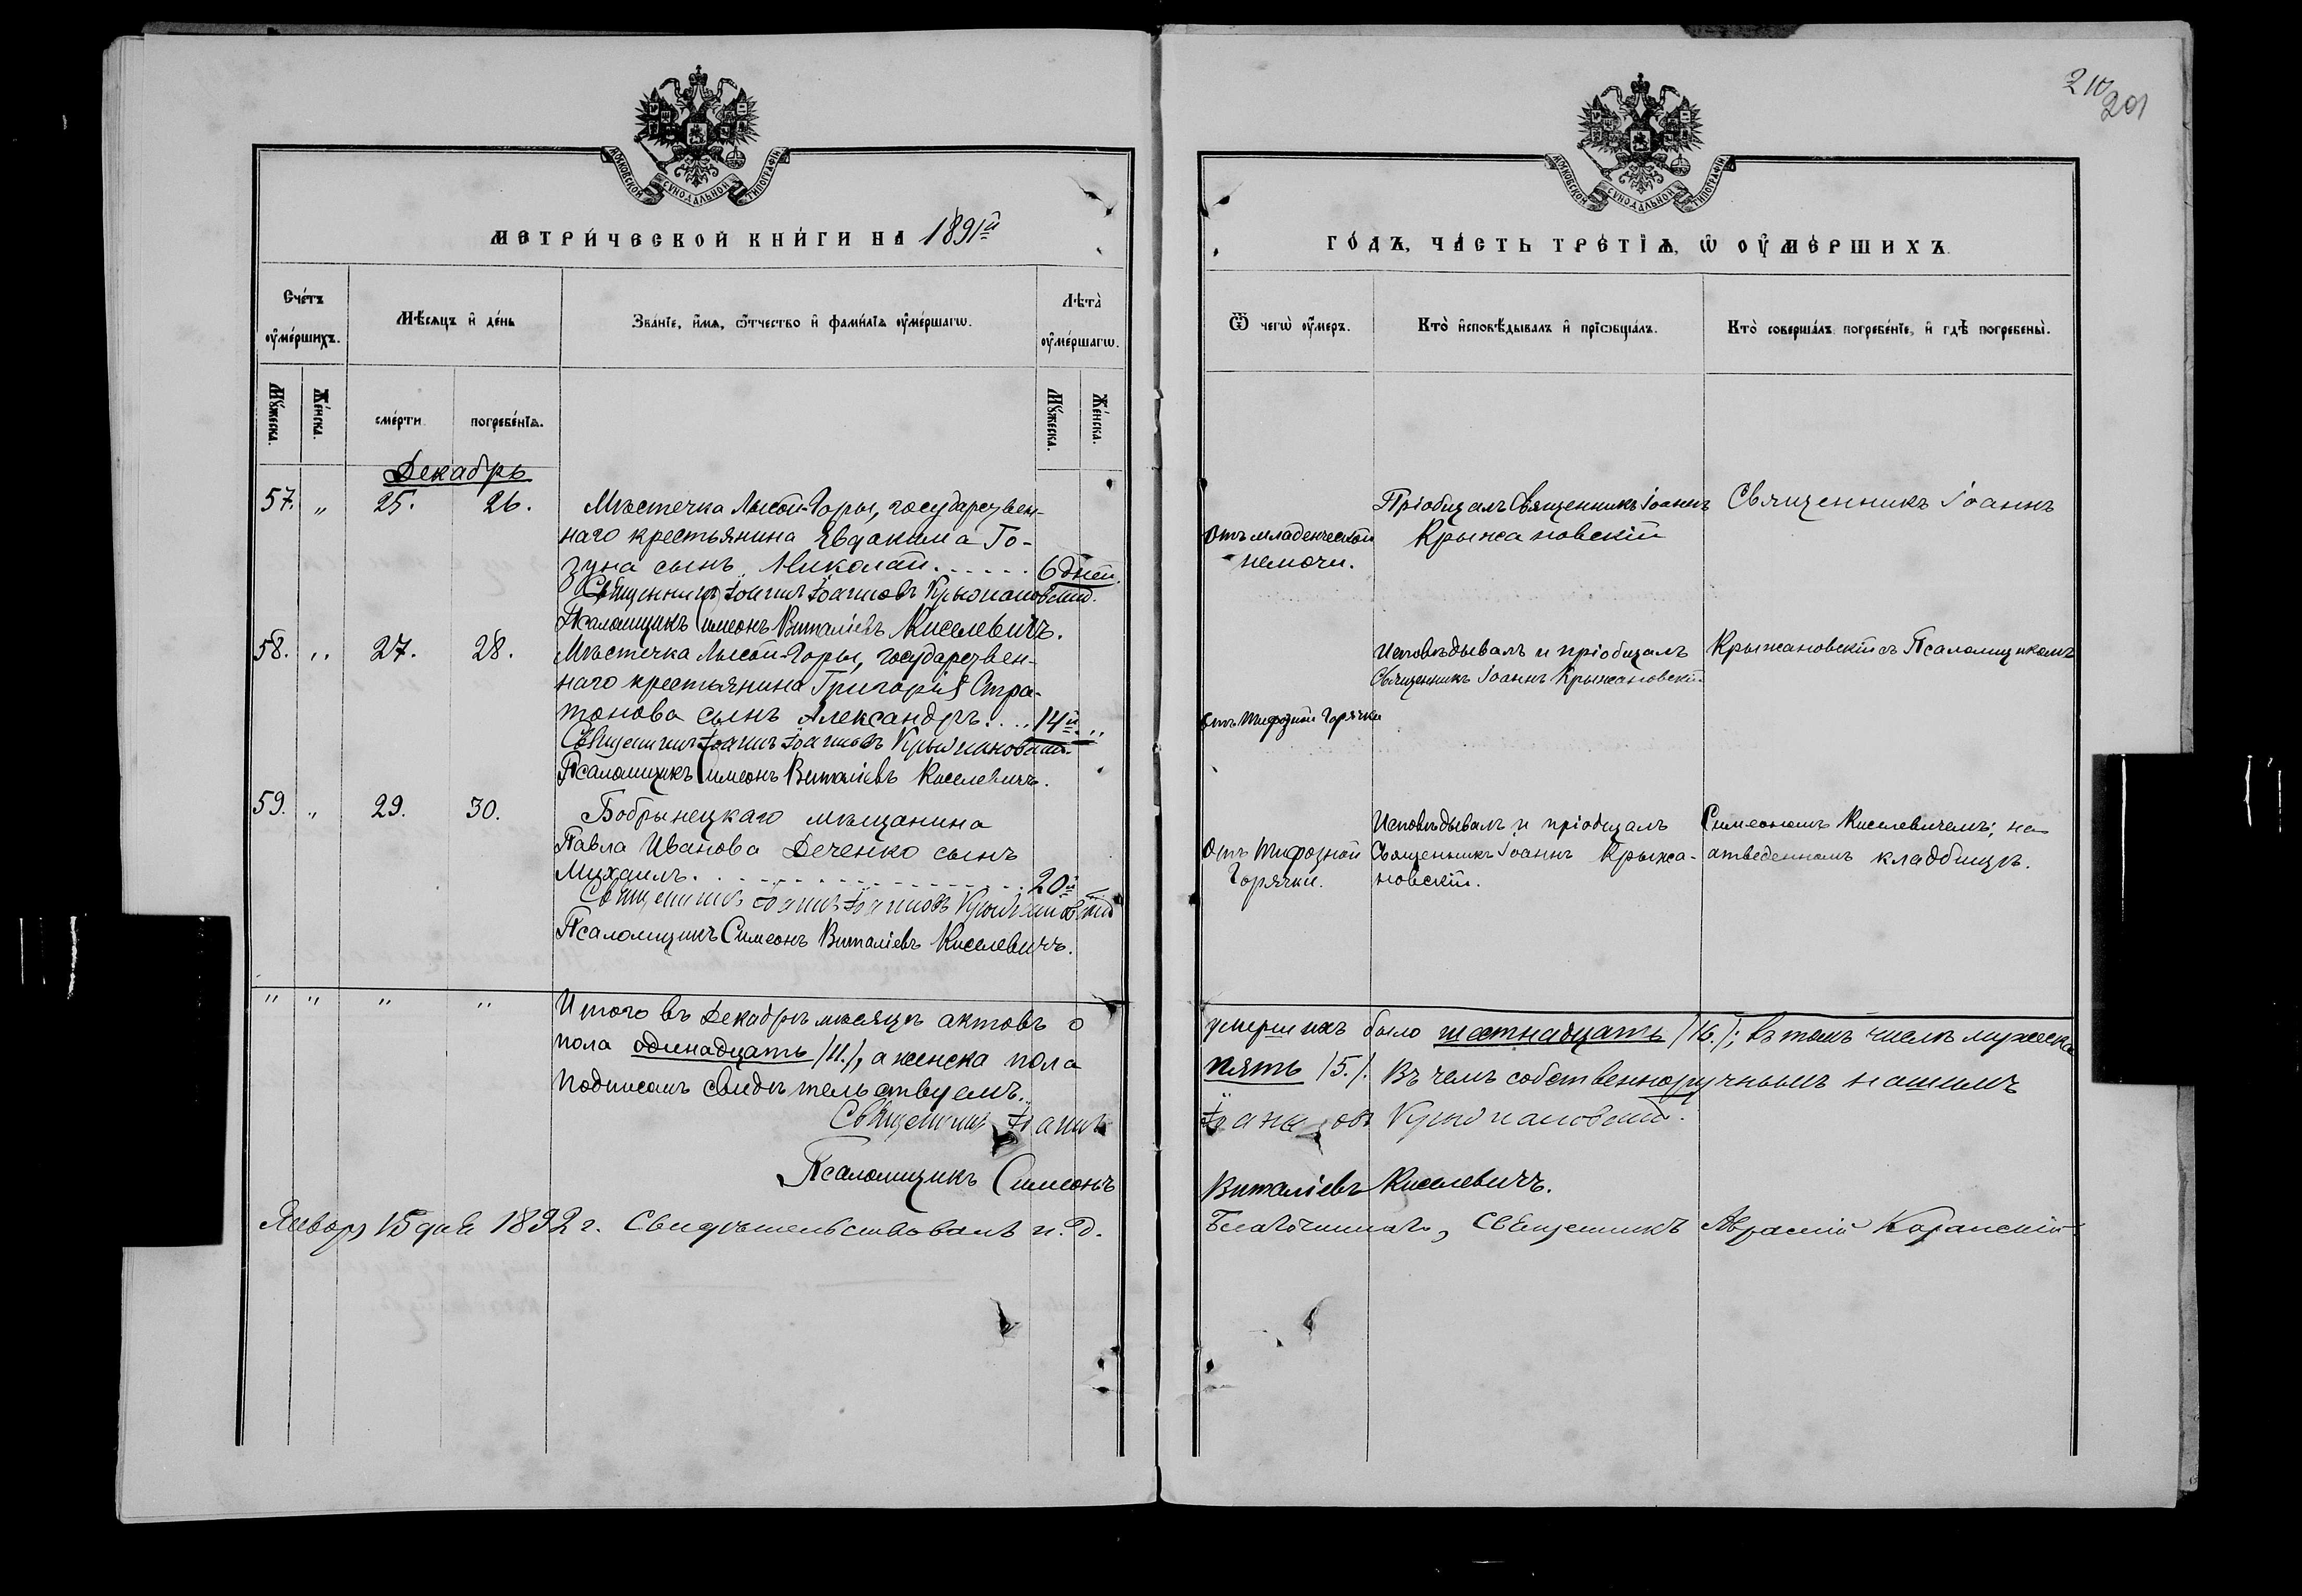 210
201
МОСКОВСКОЙ СѴНОДАЛЬНОЙ ТИПОГРАФІИ
МЕТРИ́ЧЕСКОЙ КНИ́ГИ НА 1891й
Сче́тъ оу҆ме́ршихъ.
Мѣ́сяцъ и҆ де́нь
Зва́нїе, и҆́мѧ, ѻ҆́тчество и҆ фами́лїѧ оу҆ме́ршагѡ.
Лѣта̀ оу҆ме́ршагѡ.
Мꙋ́жеска.
Же́нска.
сме́рти
погребе́нїѧ.
Мꙋ́жеска.
Же́нска.
Декабрь
57. „ 25. 26. Мѣстечка Лысой-Горы, государствен-
наго крестьянина Евдокима Го-
зуна сынъ Николай...... 6 дней.
Священникъ Іоаннъ Іоанновъ Крыжановскій.
Псаломщикъ Симеонъ Виталіевъ Киселевичъ.
58. „ 27. 28. Мѣстечка Лысой-Горы, государствен-
наго крестьянина Григорія Стра-
тонова сынъ Александръ.... 14й „
Священникъ Іоаннъ Іоанновъ Крыжановскій.
Псаломщикъ Симеонъ Виталіевъ Киселевичъ.
59. „ 29. 30. Бобринецкаго мѣщанина
Павла Иванова Деченко сынъ
Михаилъ. 20й
Священникъ Іоаннъ Іоанновъ Крыжановскій
Псаломщикъ Симеонъ Виталіевъ Киселевичъ.
„ „ „ „ Итого въ Декабрѣ мѣсяцѣ актовъ о
пола одинадцать /11./, а женска пола
подписомъ свидѣтельствуемъ.
Священникъ Іоаннъ
Псаломщикъ Симеонъ
Января 15 дня 1892 г. Свидѣтельствовалъ и. д.
МОСКОВСКОЙ СѴНОДАЛЬНОЙ ТИПОГРАФІИ
ГО́ДЪ, ЧА́СТЬ ТРЕ́ТЇѦ, Ѡ҆ ОУ҆МЕ́РШИХЪ.
Ѿ чегѡ̀ оу҆́меръ.
Кто̀ и҆сповѣ́дывалъ и҆ прїѡбща́лъ.
Кто̀ соверша́лъ погребе́нїе, и҆ гдѣ̀ погребены̀.
Отъ младенческой
немочи.
Пріобщалъ Священникъ Іоаннъ
Крыжановскій
Священникъ Іоаннъ
Исповѣдывалъ и пріобщалъ
Священникъ Іоаннъ Крыжановскій
Крыжановскій съ Псаломщикомъ
Отъ Тифозной Горячки
Исповѣдывалъ и пріобщалъ
Священникъ Іоаннъ Крыжа-
новскій.
Симеономъ Киселевичемъ; на
отведенномъ кладбищѣ.
Отъ Тифозной
Горячки.
умершихъ было шестнадцать /16./; въ томъ числѣ мужеска
пять /5./. Въ чемъ собственноручнымъ нашимъ
Іоанновъ Крыжановскій.
Виталіевъ Киселевичъ.
Благочиннаго, Священникъ